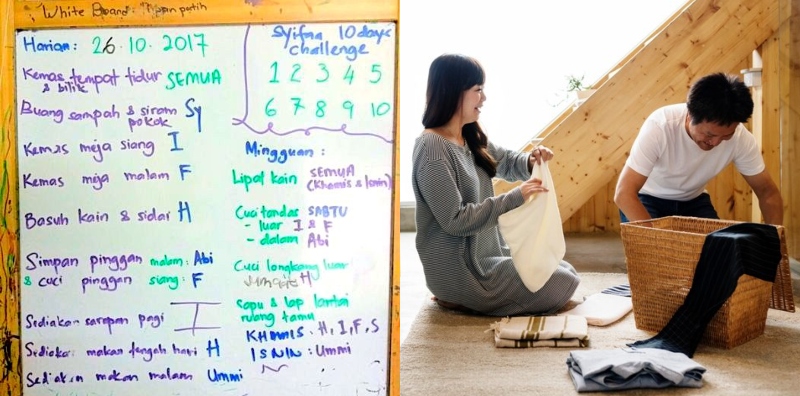 White Board : Papan putih
Harian : 26.10.2017
Kemas tempat tidur SEMUA
& bilik
Buang sampah & siram Sy
pokok
Kemas meja siang I
Kemas meja malam F
Basuh kain & sidai H
Simpan pinggan malam : Abi
& cuci pinggan siang : F
Sediakan sarapan pagi I
Sediakan makan tengah hari H
Sediakan makan malam Ummi
Syifaa 10 days
challenge
1 2 3 4 5
6 7 8 9 10
Mingguan :
Lipat kain SEMUA
(khamis & isnin)
Cuci tandas SABTU
- luar I & F
- dalam Abi
Cuci longkang luar
H
Sapu & lap lantai
ruang tamu
KHAMIS : H, I, F, S
ISNIN : Ummi